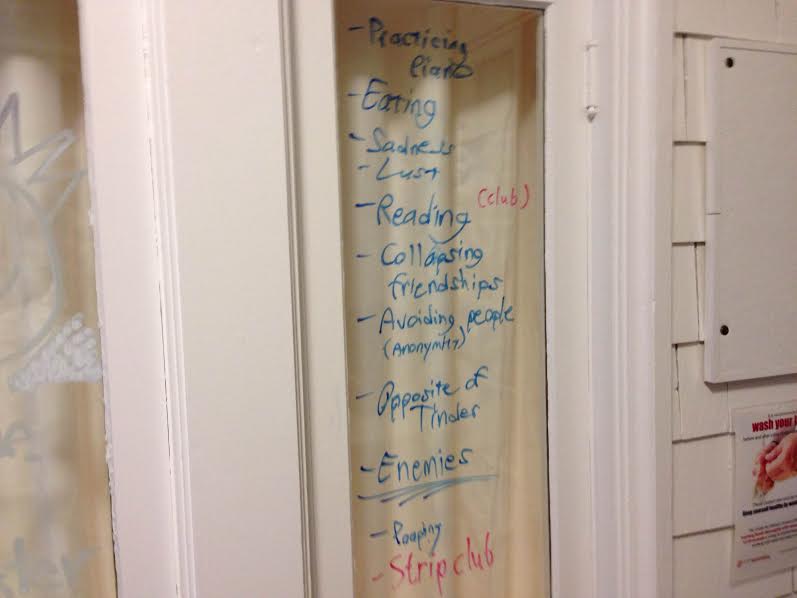 - Practicing
Piano
- Eating
- Sadness
- Lust
- Reading (club)
- Collapsing
friendships
- Avoiding people
(Anonymity)
- Opposite of
Tinder
- Enemies
- Pooping
- Strip club
wash your